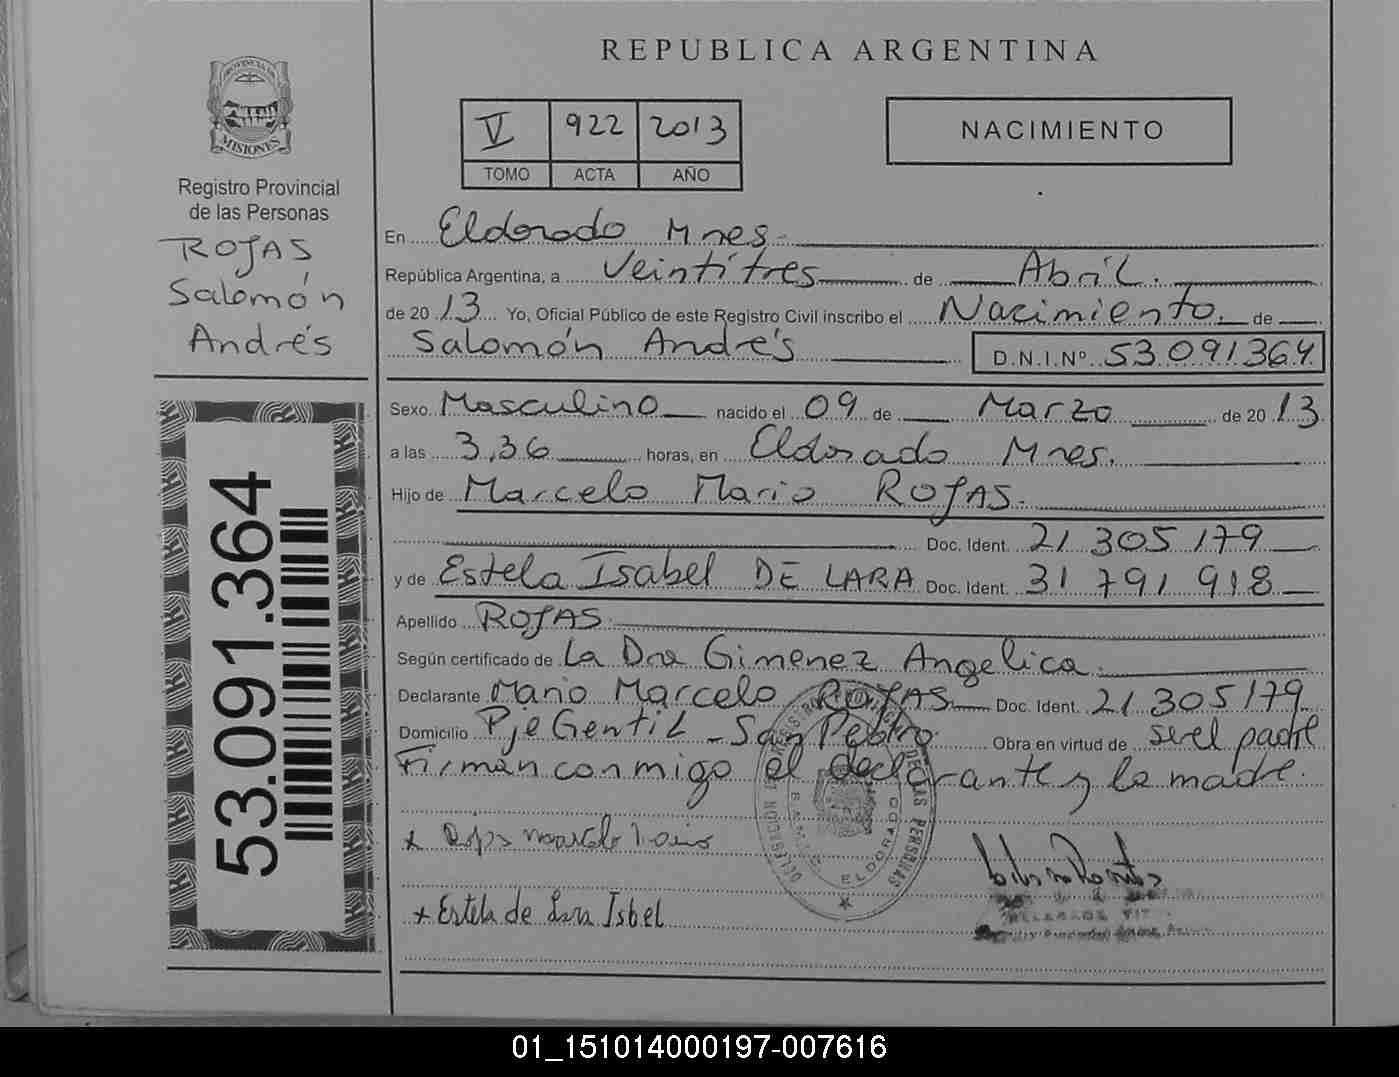 REPUBLICA ARGENTINA
PROVINCIA DE
MISIONES
Registro Provincial
de las Personas
ROJAS
Salomón
Andrés
V 922 2013
TOMO ACTA AÑO
NACIMIENTO
En Eldorado Mnes.
República Argentina, a Veintitres de Abril.
de 20 13 Yo, Oficial Público de este Registro Civil inscribo el Nacimiento. de
Salomón Andrés D.N.I.Nº. 53.091.364
Sexo. Masculino nacido el 09 de Marzo de 20 13
a las 3,36 horas, en Eldorado Mnes.
Hijo de Marcelo Mario ROJAS.
Doc. Ident. 21 305 179
y de Estela Isabel DE LARA Doc. Ident. 31 791 918
Apellido ROJAS
Según certificado de La Dra Gimenez Angelica.
Declarante Mario Marcelo ROJAS Doc. Ident. 21 305 179
Domicilio Pje Gentil - San Pedro Obra en virtud de ser el padre
Firman conmigo el declarante y la madre.
x Rojas Marcelo Mario
x Estela de Lara Isbel
DE LAS PERSONAS
ELDORADO
53.091.364
01_151014000197-007616